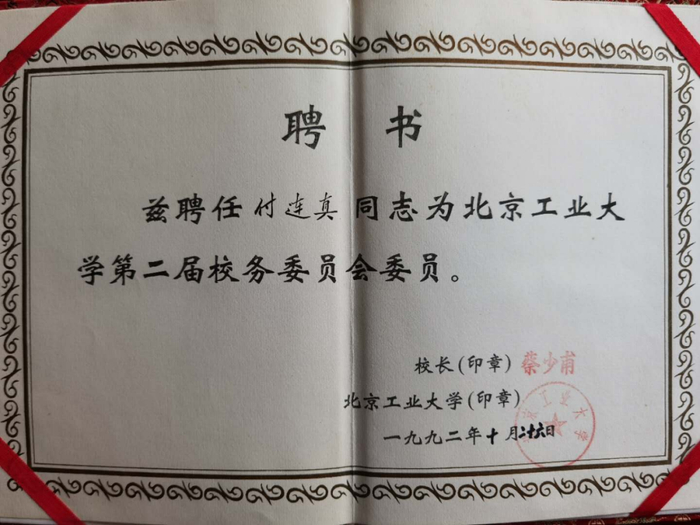 聘 书
兹聘任付连真同志为北京工业大
学第二届校务委员会委员。
校长(印章)蔡少甫
北京工业大学(印章)
北京工业大学
一九九二年十月二十六日